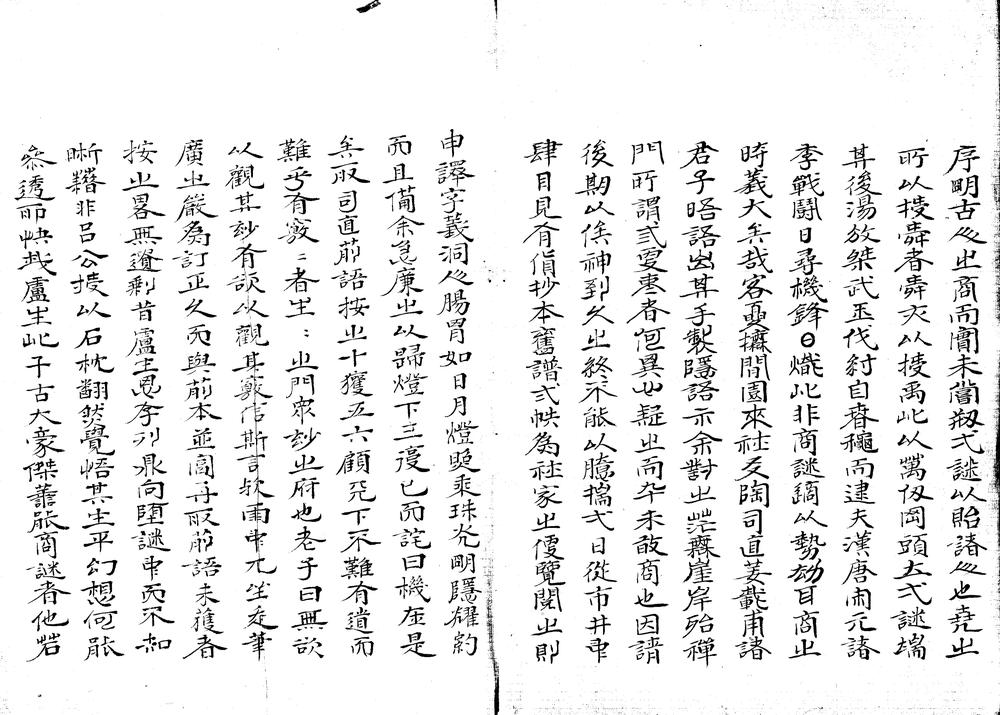 序明古人之商而實未嘗規弍謎以貽諸人也堯之
所以授舜者舜亦以授禹此以萬仭岡頭立弌謎端
其後湯放桀武王伐紂自春穐而逮夫漢唐閙元諸
季戰鬪日尋機鋒日熾此非商謎鏑以勢劾耳商之
時義大矣哉客夏攡間園來社友陶司直姜載甫諸
君子晤語出其手製隱語示余對之茫無崖岸殆禪
門所謂弍叟惠者何異也疑之而卒未敢商也因請
後期以俟神到久之終不能以臆揣弌日從市井中
肆目見有貨抄本舊譜弍帙為社家之便覽閱之則
申譯字義洞人腸胃如日月燈與乘珠光明隱耀約
而且備余怠廉之以歸燈下三復已而詫曰機在是
矣取司直前語按之十獲五六顧天下不難有遒而
難乎有竅〻者生〻之門眾玅之府也老子曰無欲
以觀其玅有欲以觀其竅信斯言欤爾中兀坐走筆
廣之嚴為訂正久而與前本並圖再取前語未獲者
按之畧無遺剩昔盧生思李列鼎向墮謎中而不知
晰藉非吕公授以石枕翻然覺悟其生平幻想何能
叅透而快哉盧生此千古大豪傑善能商謎者他若